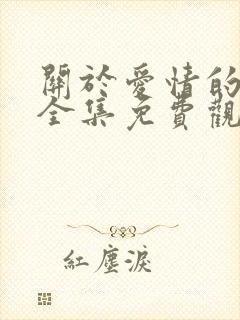 關於愛情的
全集免費觀
紅塵淚